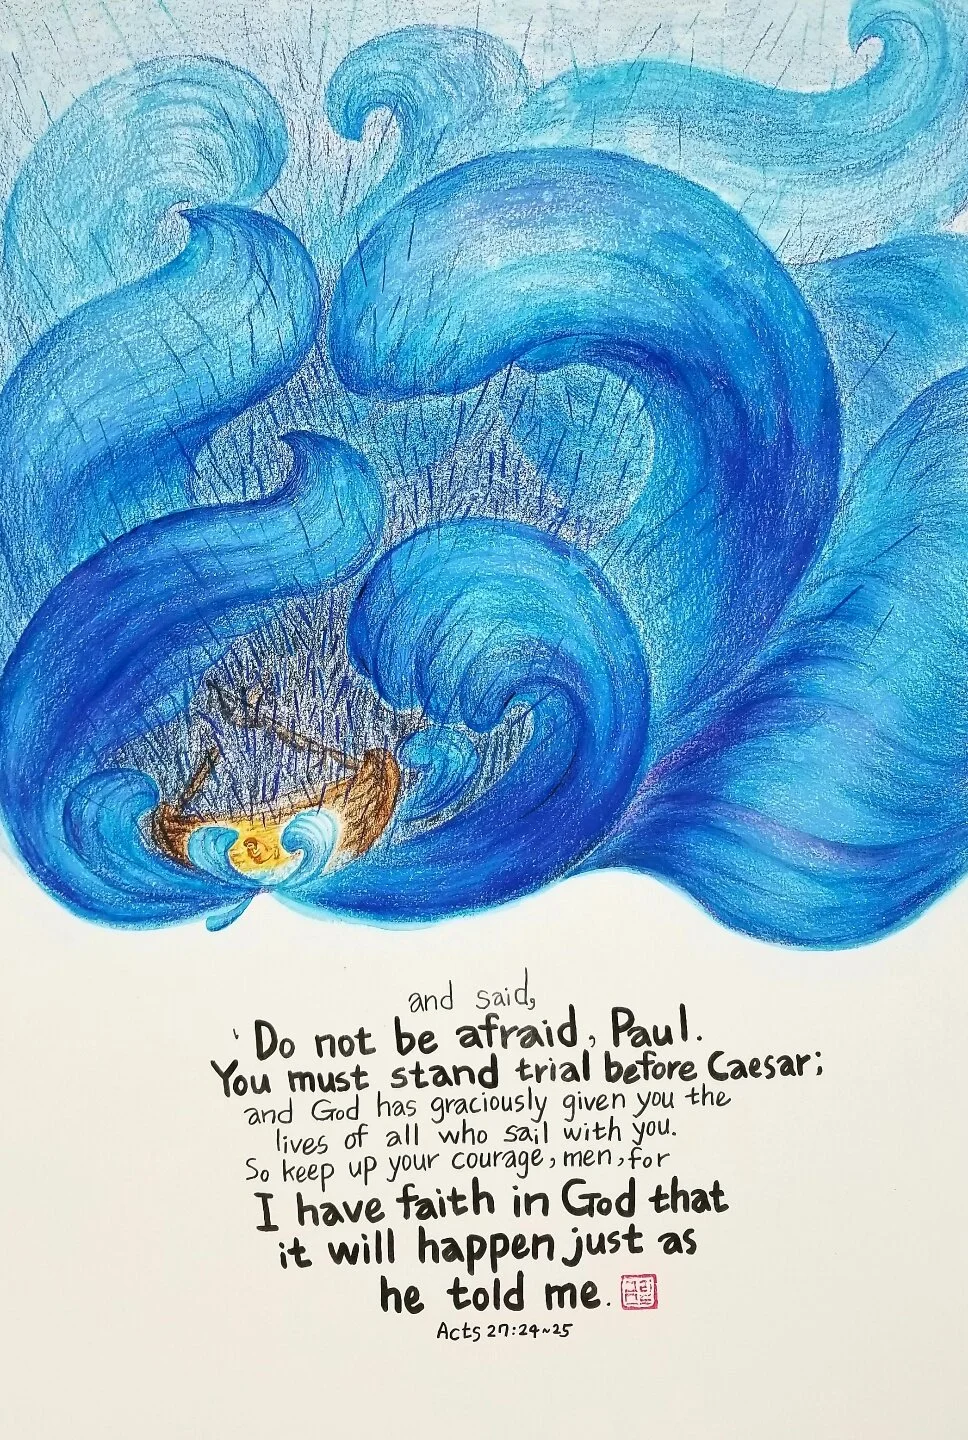 and said,
'Do not be afraid, Paul.
You must stand trial before Caesar;
and God has graciously given you the
lives of all who sail with you.
So keep up your courage, men, for
I have faith in God that
it will happen just as
he told me.
Acts 27:24~25